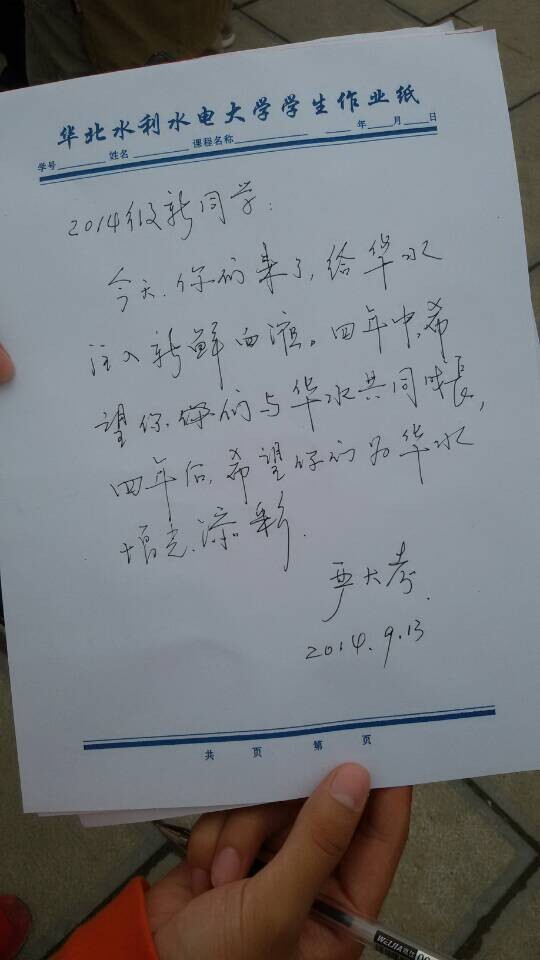 华北水利水电大学学生作业纸
学号 姓名 课程名称 年 月 日
2014级新同学：
今天，你们来了，给华水
注入新鲜血液。四年中，希
望你们与华水共同成長，
四年后，希望你们为华水
增光、添彩。
严大考
2014.9.13
共 页 第 页
WEIJIA